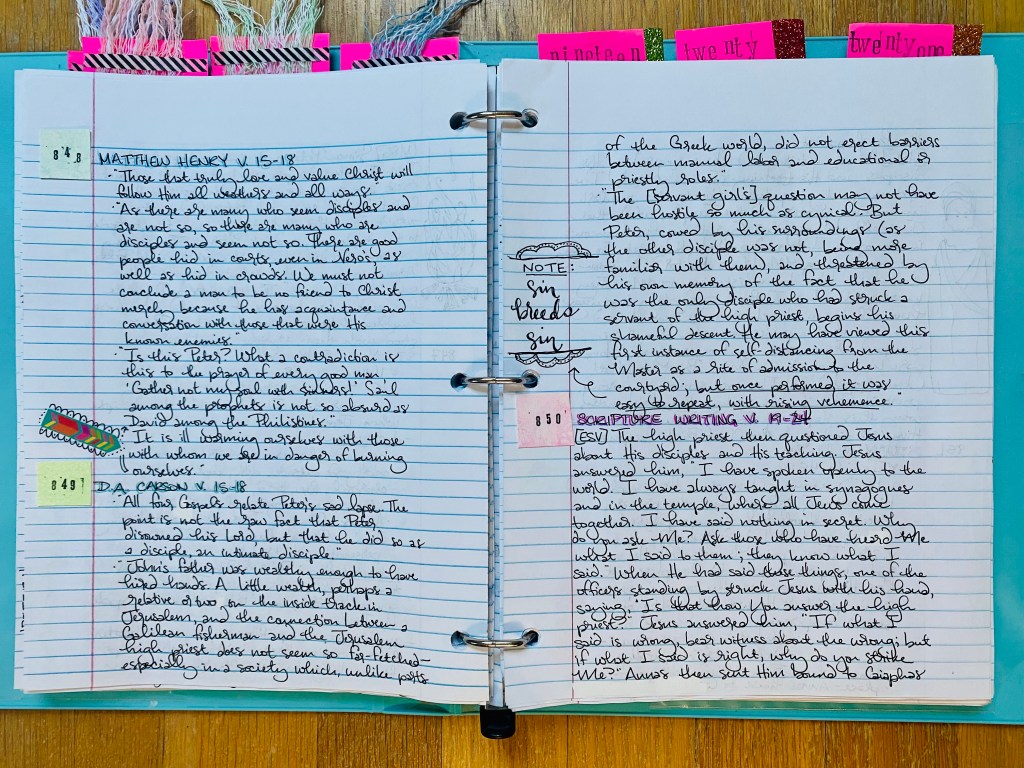 nineteen
twenty
twenty one
848
MATTHEW HENRY V. 15-18
·"Those that truly love and value Christ will
follow Him all weathers and all ways."
·"As there are many who seem disciples and
are not so, so there are many who are
disciples and seem not so. There are good
people hid in courts, even in Nero's, as
well as hid in crowds. We must not
conclude a man to be no friend to Christ
merely because he has acquaintance and
conversation with those that were His
known enemies."
·"Is this Peter? What a contradiction is
this to the prayer of every good man
'Gather not my soul with sinners!' Saul
among the prophets is not so absurd as
David among the Philistines."
·"It is ill warming ourselves with those
with whom we are in danger of burning
ourselves."
849
D.A. CARSON V. 15-18
·"All four Gospels relate Peter's sad lapse. The
point is not the raw fact that Peter
disowned his Lord, but that he did so as
a disciple, an intimate disciple."
·"John's father was wealthy enough to have
hired hands. A little wealth, perhaps a
relative or two on the inside track in
Jerusalem, and the connection between a
Galilean fisherman and the Jerusalem
high priest does not seem so far-fetched—
especially in a society which, unlike parts
of the Greek world, did not erect barriers
between manual labor and educational or
priestly roles."
·"The [servant girl's] question may not have
been hostile so much as cynical. But
Peter, cowed by his surroundings (as
the other disciple was not, being more
familiar with them), and threatened by
his own memory of the fact that he
was the only disciple who had struck a
servant of the high priest, begins his
shameful descent. He may have viewed this
first instance of self-distancing from the
Master as a rite of admission to the
courtyard; but once performed it was
easy to repeat, with rising vehemence."
NOTE:
sin
breeds
sin
850
SCRIPTURE WRITING V. 19-24
[ESV] The high priest then questioned Jesus
about His disciples and His teaching. Jesus
answered him, "I have spoken openly to the
world. I have always taught in synagogues
and in the temple, where all Jews come
together. I have said nothing in secret. Why
do you ask Me? Ask those who have heard Me
what I said to them; they know what I
said." When He had said these things, one of the
officers standing by struck Jesus with his hand,
saying, "Is that how You answer the high
priest?" Jesus answered him, "If what I
said is wrong, bear witness about the wrong; but
if what I said is right, why do you strike
Me?" Annas then sent Him bound to Caiaphas